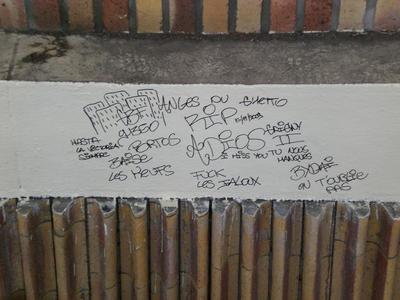 ANGES DU GHETTO
RIP
91350
GRIGNY
II
PORTOS
ADIOS
HASTA
LA VICTORIA
SIEMPRE
I MISS YOU TU NOUS
MANQUES
BAISE
LES KEUFS
FUCK
LES JALOUX
ON T'OUBLIE
PAS